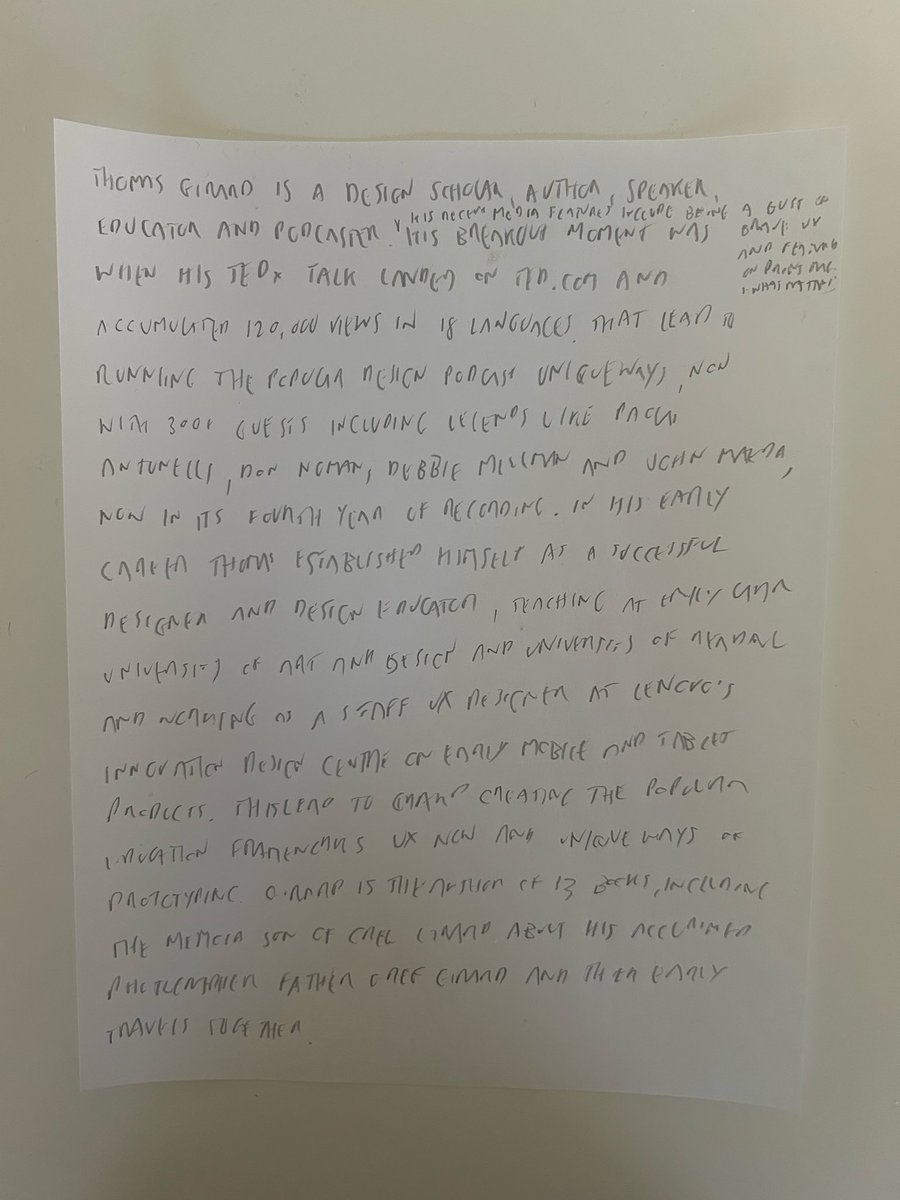 THOMAS GIRARD IS A DESIGN SCHOLAR, AUTHOR, SPEAKER,
HIS RECENT MEDIA FEATURES INCLUDE BEING A GUEST ON
EDUCATOR AND PODCASTER. HIS BREAKOUT MOMENT WAS
BRAVE UX
AND
ON
WHEN HIS TEDx TALK LANDED ON TED.COM AND
ACCUMULATED 120,000 VIEWS IN 18 LANGUAGES. THAT LEAD TO
RUNNING THE POPULAR DESIGN PODCAST UNIQUEWAYS, NOW
WITH 300+ GUESTS INCLUDING LEGENDS LIKE PAOLA
ANTONELLI, DON NORMAN, DEBBIE MILLMAN AND JOHN MAEDA,
NOW IN ITS FOURTH YEAR OF RECORDING. IN HIS EARLY
CAREER THOMAS ESTABLISHED HIMSELF AS A SUCCESSFUL
DESIGNER AND DESIGN EDUCATOR, TEACHING AT EMILY CARR
UNIVERSITY OF ART AND DESIGN AND UNIVERSITY OF
AND WORKING AS A STAFF UX DESIGNER AT LENOVO'S
INNOVATION DESIGN CENTRE ON EARLY MOBILE AND TABLET
PRODUCTS. THIS LEAD TO CREATING THE POPULAR
FRAMEWORKS UX NOW AND UNIQUE WAYS OF
PROTOTYPING. GIRARD IS THE AUTHOR OF 13 BOOKS, INCLUDING
THE MEMOIR SON OF GREG GIRARD ABOUT HIS ACCLAIMED
PHOTOGRAPHER FATHER GREG GIRARD AND THEIR EARLY
TRAVELS TOGETHER.